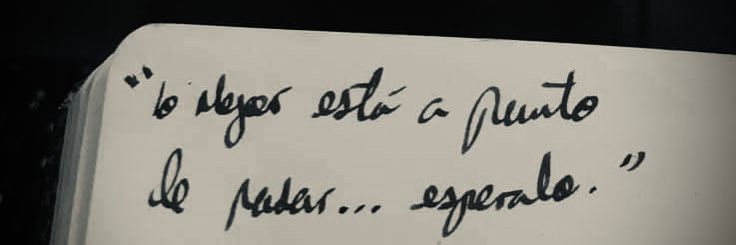 "lo mejor está a punto
de pasar... esperalo."